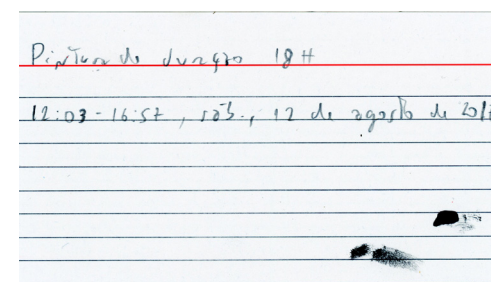 Pintura de duração 18H
12:03-16:57, sáb., 12 de agosto de